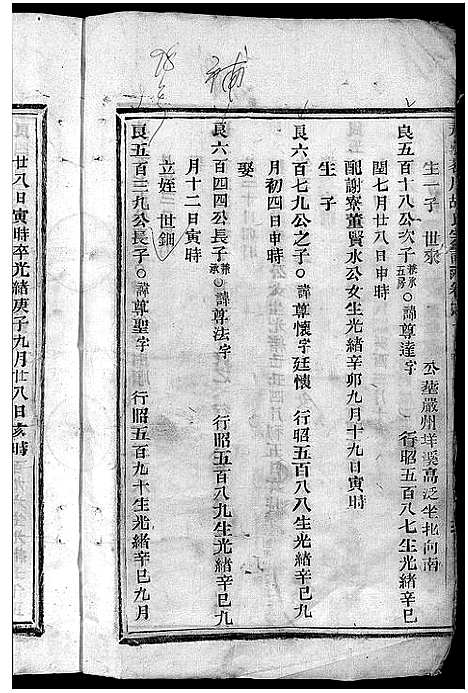 補
生一子 世承
良五百十八公次子兼承五房〇諱尊達字 行昭五百八七生光緒辛巳
閏七月廿八日申時 公塟嚴州垟溪高泛坐北向南
配謝寮董賢水公女生光緒辛卯九月十九日寅時
生子
良六百七九公之子〇諱尊懷字廷懷 行昭五百八八生光緒辛巳九
月初四日申時
娶
良六百四四公長子兼承〇諱尊法字 行昭五百八九生光緒辛巳九
月十二日寅時
立姪三世鈿
良五百三九公長子〇諱尊聖字 行昭五百九十生光緒辛巳九月
廿八日寅時卒光緒庚子九月廿八日亥時